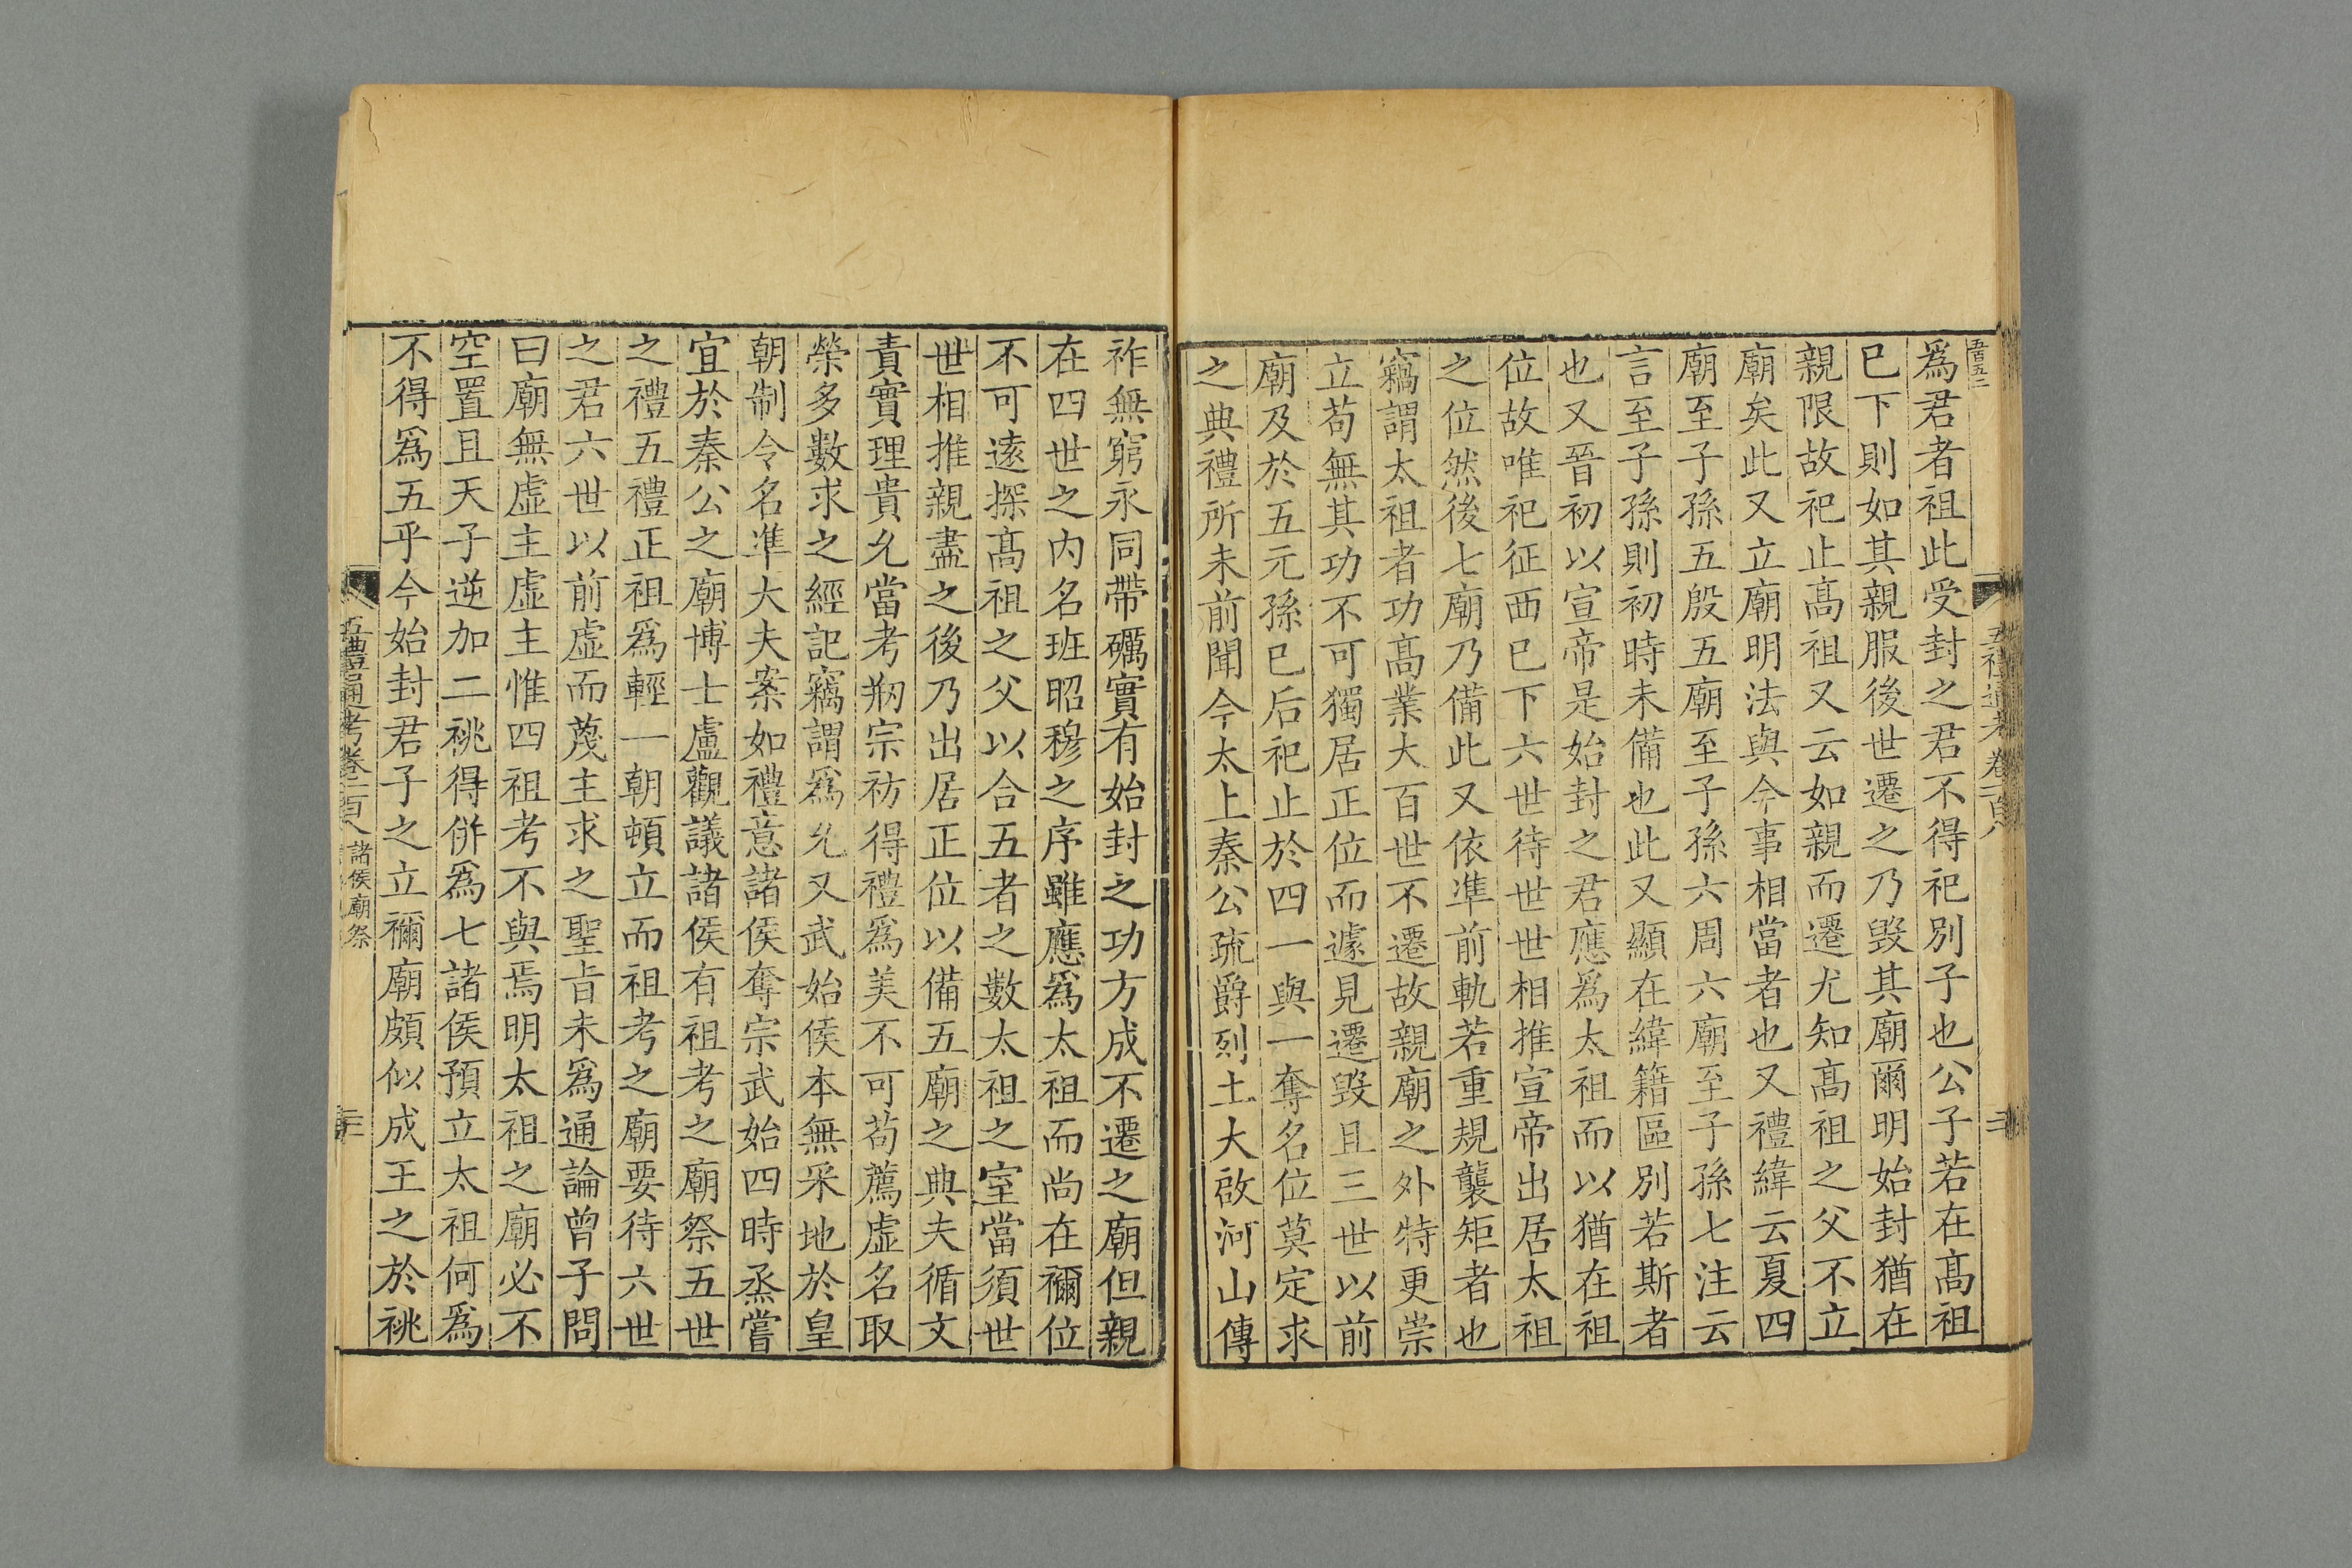 爲君者祖此受封之君不得祀別子也公子若在髙祖
巳下則如其親服後世遷之乃毁其廟爾明始封猶在
親限故祀止髙祖又云如親而遷尤知髙祖之父不立
廟矣此又立廟明法與今事相當者也又禮緯云夏四
廟至子孫五殷五廟至子孫六周六廟至子孫七注云
言至子孫則初時未備也此又顯在緯籍區別若斯者
也又晉初以宣帝是始封之君應爲太祖而以猶在祖
位故唯祀征西已下六世待世世相推宣帝出居太祖
之位然後七廟乃備此又依準前軌若重規襲矩者也
竊謂太祖者功髙業大百世不遷故親廟之外特更崇
立苟無其功不可獨居正位而遽見遷毁且三世以前
廟及於五元孫巳后祀止於四一與一奪名位莫定求
之典禮所未前聞今太上秦公疏爵列土大啟河山傳
祚無窮永同帶礪實有始封之功方成不遷之廟但親
在四世之内名班昭穆之序雖應爲太祖而尚在禰位
不可遠探髙祖之父以合五者之數太祖之室當須世
世相推親盡之後乃出居正位以備五廟之典夫循文
責實理貴允當考剏宗祊得禮爲美不可苟薦虚名取
榮多數求之經記竊謂爲允又武始侯本無采地於皇
朝制令名準大夫案如禮意諸侯奪宗武始四時烝嘗
宜於秦公之廟博士盧觀議諸侯有祖考之廟祭五世
之禮五禮正祖爲輕一朝頓立而祖考之廟要待六世
之君六世以前虚而蔑主求之聖旨未爲通論曾子問
曰廟無虚主虚主惟四祖考不與焉明太祖之廟必不
空置且天子逆加二祧得併爲七諸侯預立太祖何爲
不得爲五乎今始封君子之立禰廟頗似成王之於祧
五禮通考卷一百八 諸侯廟祭